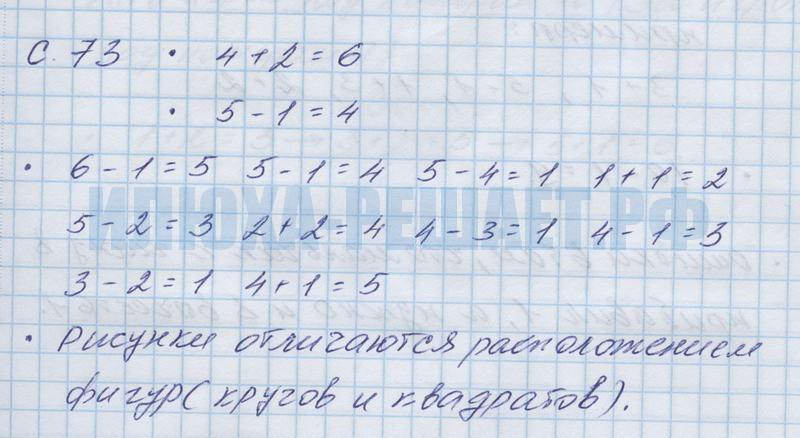 С. 73 • 4 + 2 = 6
• 5 - 1 = 4
• 6 - 1 = 5 5 - 1 = 4 5 - 4 = 1 1 + 1 = 2
ИЛЮХА-РЕШАЕТ.РФ
5 - 2 = 3 2 + 2 = 4 4 - 3 = 1 4 - 1 = 3
3 - 2 = 1 4 + 1 = 5
• Рисунки отличаются расположением
фигур (кругов и квадратов).